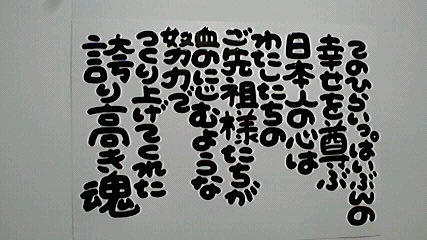 てのひらいっぱいぶんの
幸せを尊ぶ
日本人の心は
わたしたちの
ご先祖様たちが
血のにじむような
努力で
つくり上げてくれた
誇り高き魂